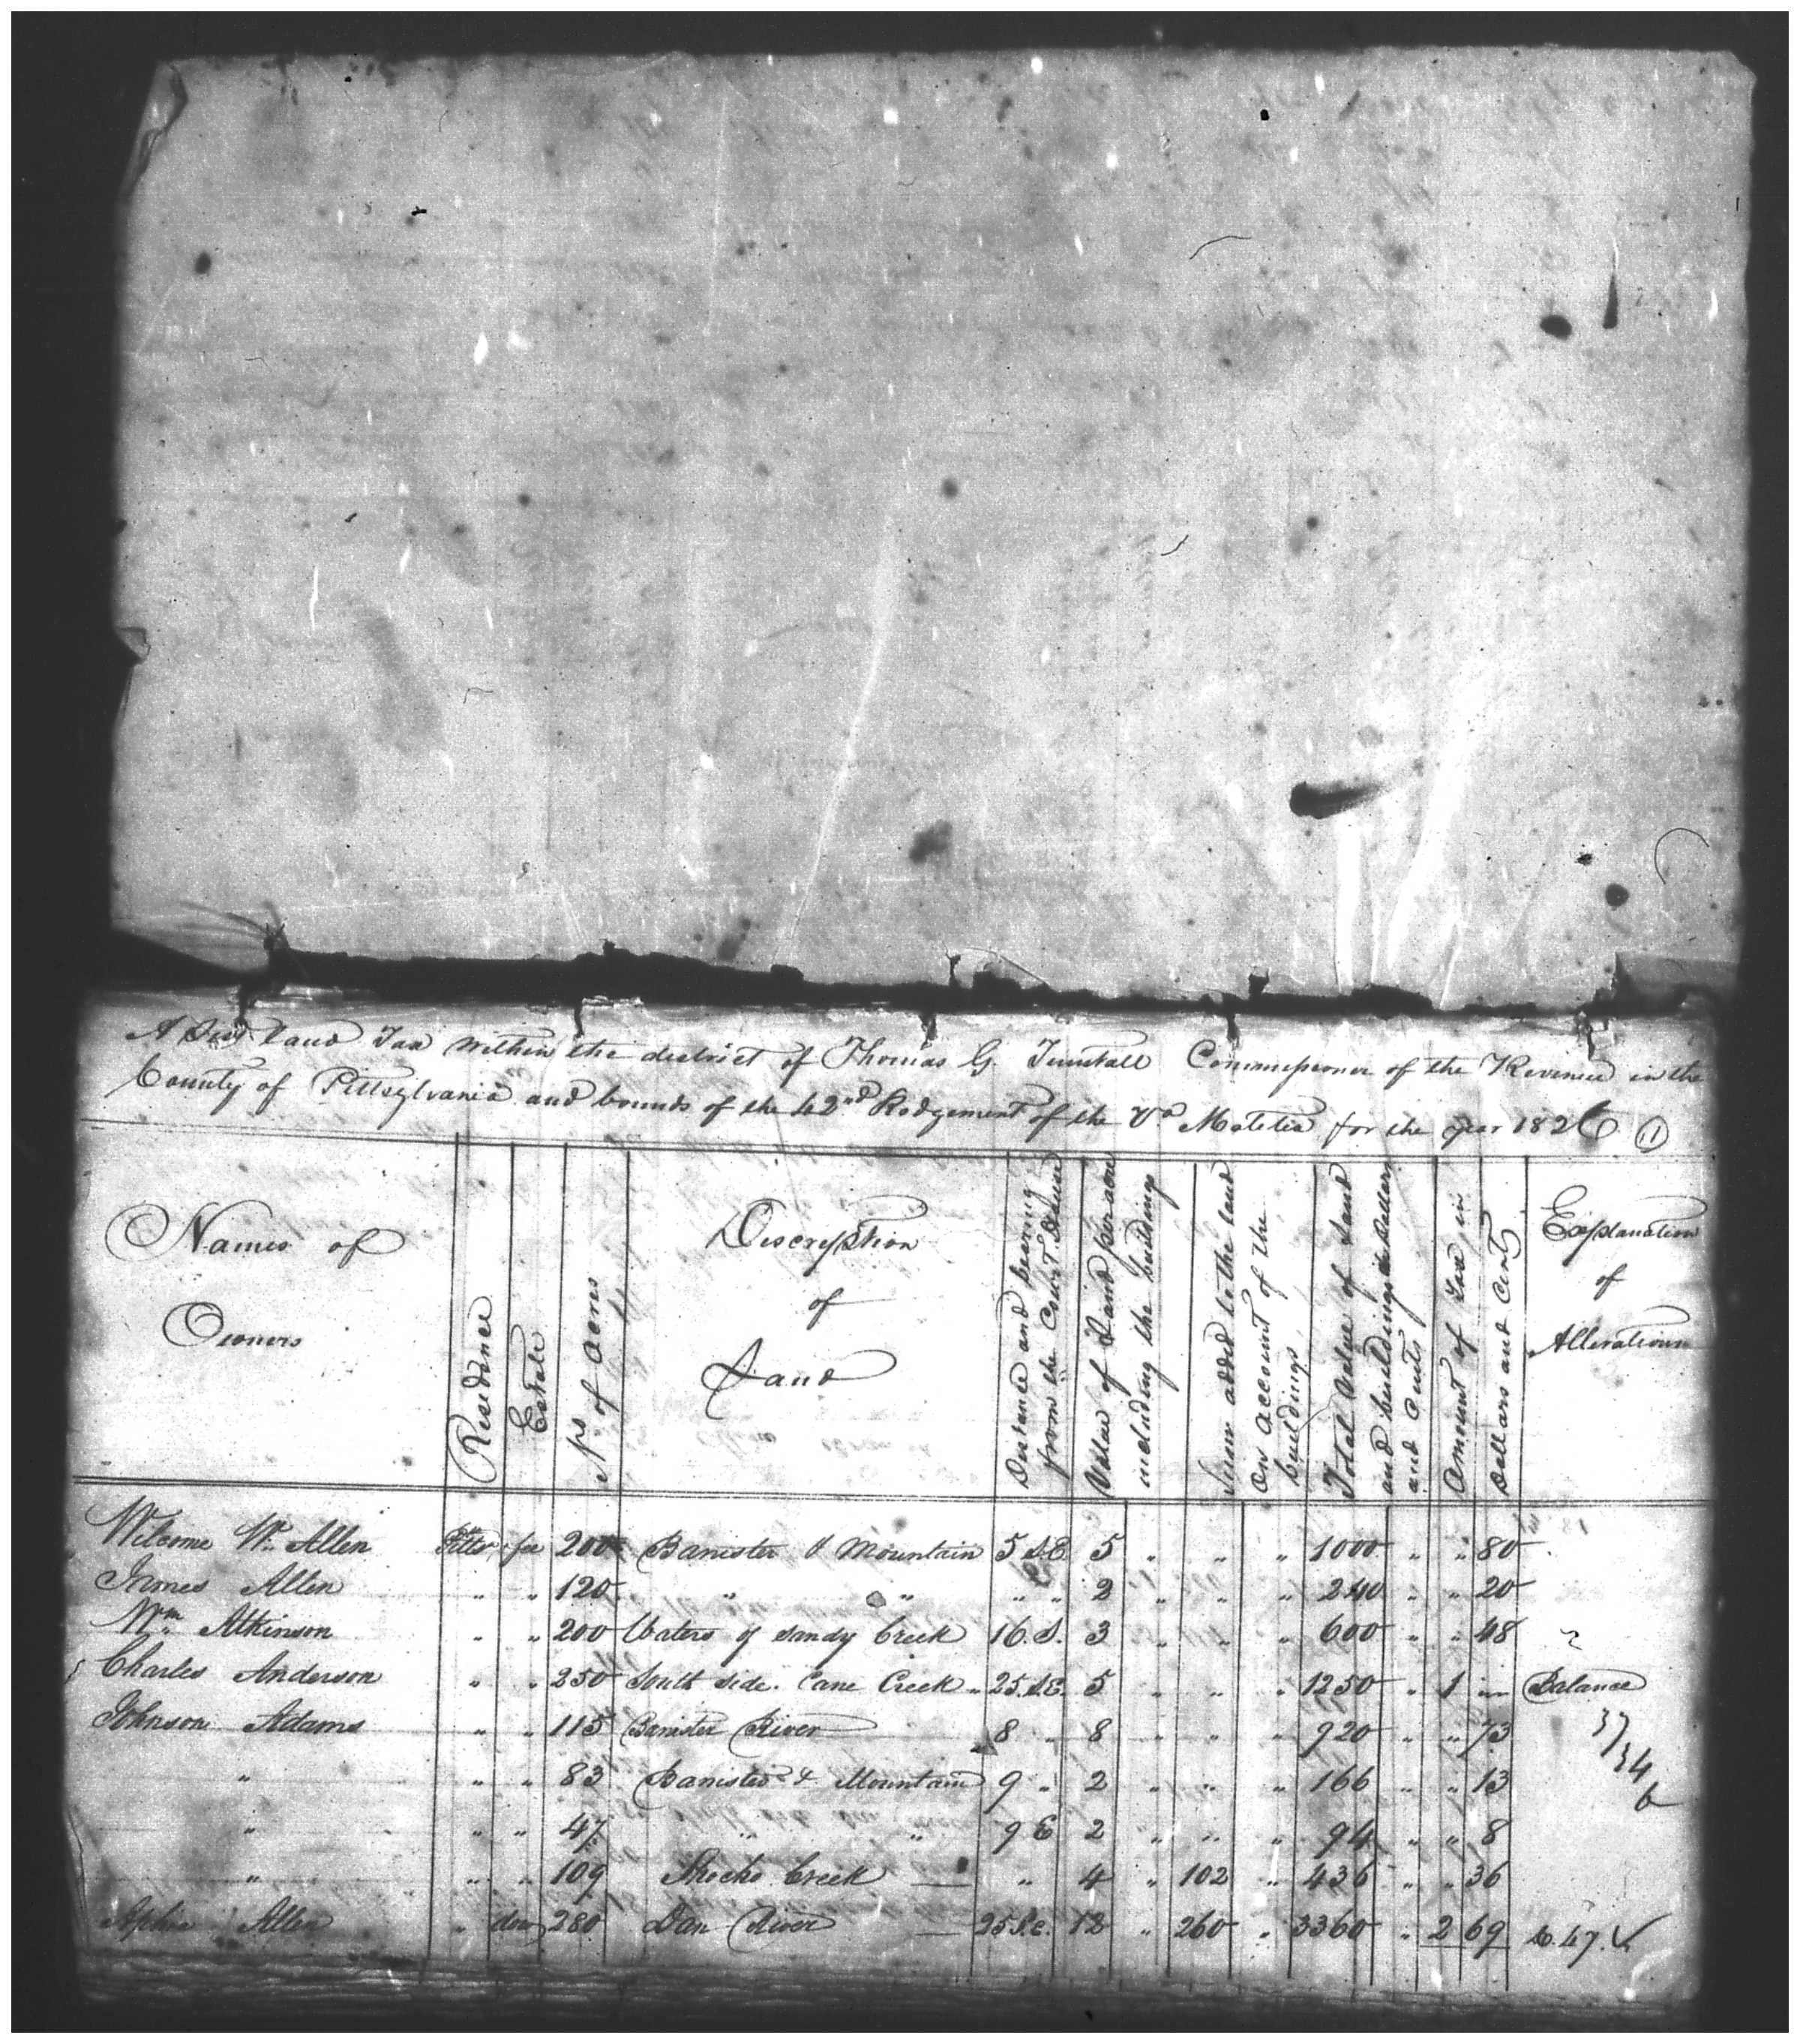 A List Land Tax within the district of Thomas G. Tunstall Commissioner of the Revenue in the
County of Pittsylvania and bounds of the 42nd Redgement of the Va Matetia for the year 1826 (1)
Names of Owners
Residence
Estate
No of Acres
Description of Land
Distance and bearing from the Court House
Value of Land per acre including the buildings
Sum added to the land on account of the buildings
Total Value of Land and buildings in Dollars and Cents
Amount of Tax in Dollars and Cents
Explanation of Alterations
Welcome Wm Allen Pittsa fee 200 Banister & Mountain 5 S.E. 5 " " " 1000 " " 80
James Allen " " 120 " " " " 2 " " " 240 " " 20
Wm Atkinson " " 200 Waters of Sandy Creek 16. S. 3 " " " 600 " " 48
Charles Anderson " " 250 South side. Cane Creek " 25. S.E. 5 " " " 1250 " 1 " Balance
Johnson Adams " " 115 Banister River 8 " 8 " " " 920 " " 73
" " " 83 Banister & Mountain 9 " 2 " " " 166 " " 13
" " " 47 " " 9 E 2 " " " 94 " " 8
" " " 109 Shocko Creek — " 4 " 102 " 436 " " 36
Allen " dow 280 Dan River — 25 S.E. 12 " 260 " 3360 " 2 69 6.47.